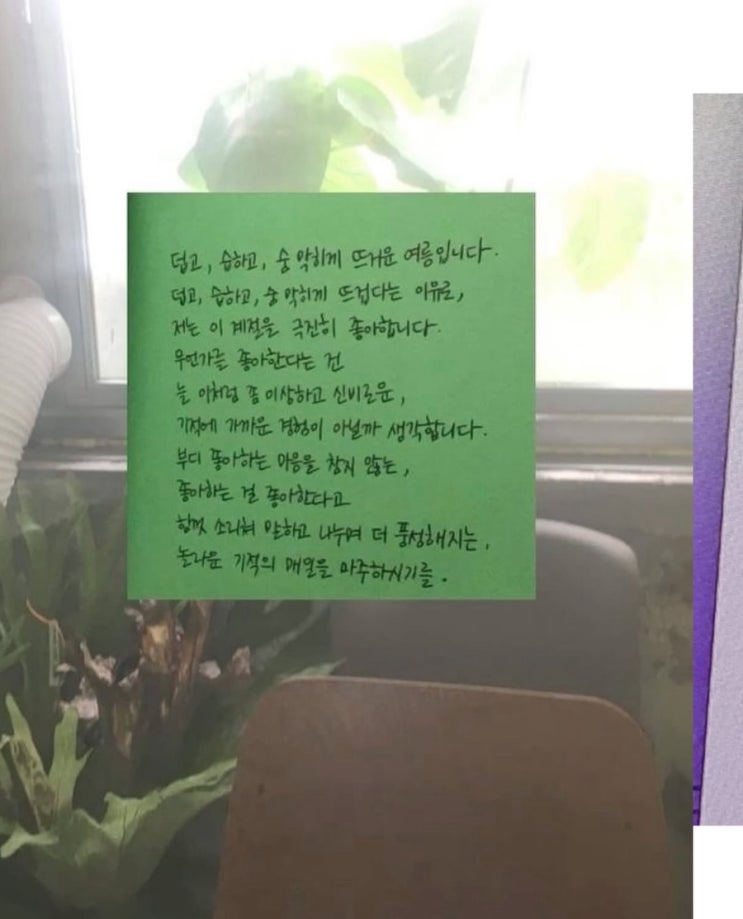 덥고, 습하고, 숨 막히게 뜨거운 여름입니다.
덥고, 습하고, 숨 막히게 뜨겁다는 이유로,
저는 이 계절을 극진히 좋아합니다.
무언가를 좋아한다는 건
늘 이처럼 좀 이상하고 신비로운,
기적에 가까운 경험이 아닐까 생각합니다.
부디 좋아하는 마음을 참지 않는,
좋아하는 걸 좋아한다고
힘껏 소리쳐 말하고 나누며 더 풍성해지는,
놀라운 기적의 매일을 마주하시기를.